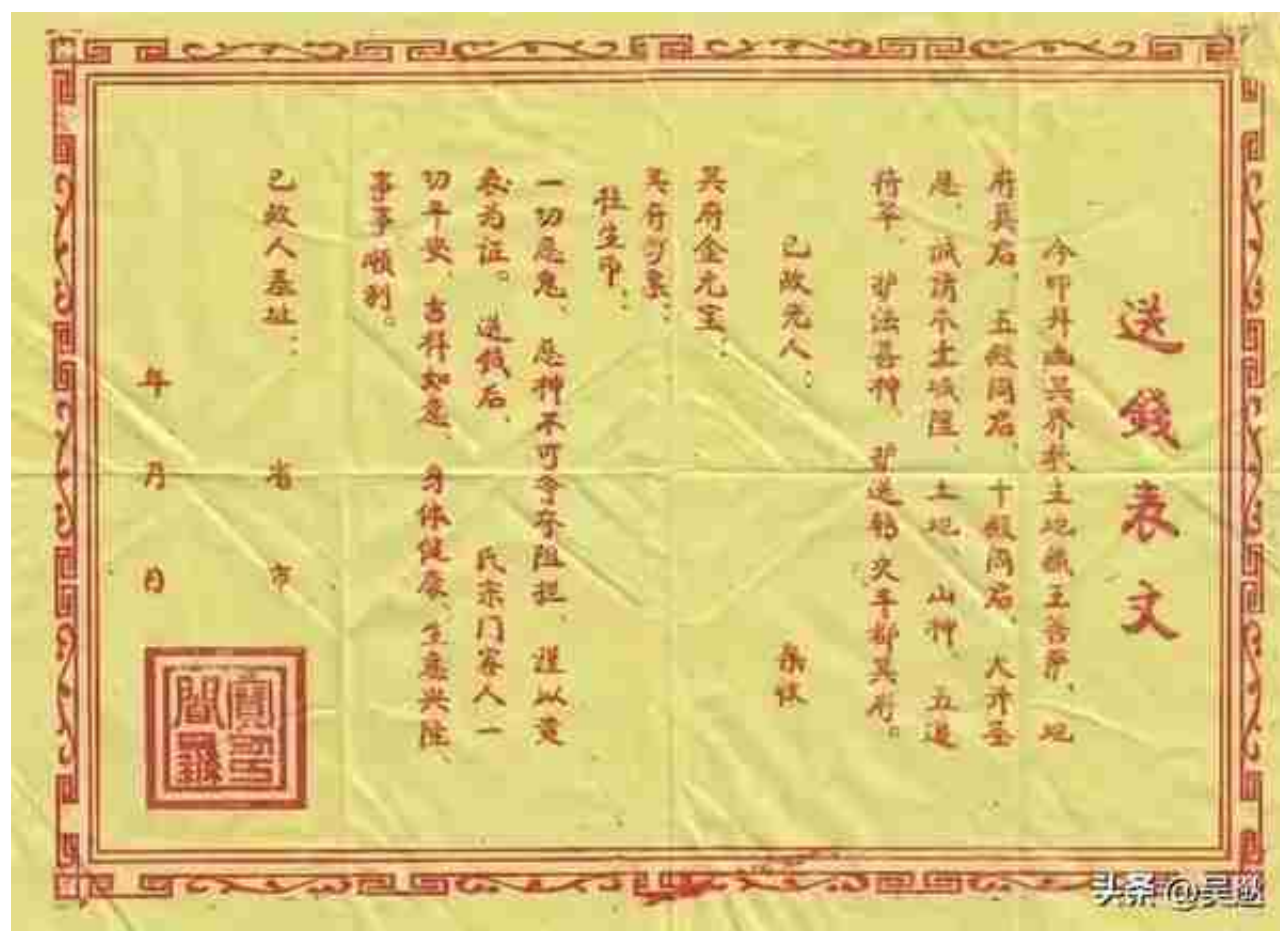 送錢表文
今叩拜幽冥界教主地藏王菩萨、地
府冥君、五殿阎君、十殿阎君、大开圣
恩、诚请本土城隍、土地、山神、五道
将军、护法善神、护送鹤火丰都冥府。
已故先人:
亲收
冥府金元宝:
冥府钞票:
往生币:
一切应急、恶神不可争夺阻拦、谨以黄
表为证。送钱后、氏宗门家人一
切平安、吉祥如意、身体健康、生意兴隆、
事事顺利。
已故人墓址: 省 市
年 月 日
头条 @吴